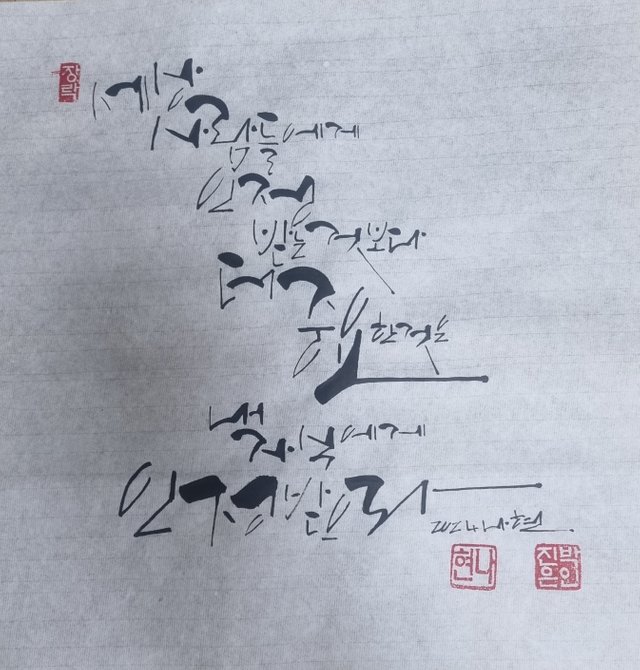 장락
세상
사람들에게
인정
받는것보다
더중
요한것은
내
자식에게
인정받으리
2024 나현
나현
박인진은